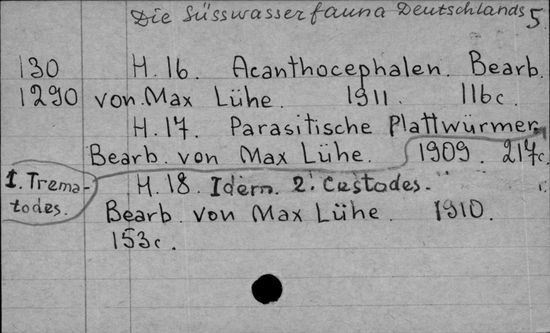 Die Süsswasserfauna Deutschlands 5.
130 H. 16. Acanthocephalen. Bearb.
1290 von Max Lühe. 1911. 116c.
H. 17. Parasitische Plattwürmer.
Bearb. von Max Lühe. 1909. 217c.
1. Trema-
todes.
H. 18. Idem. 2. Cestodes.
Bearb. von Max Lühe. 1910.
153c.